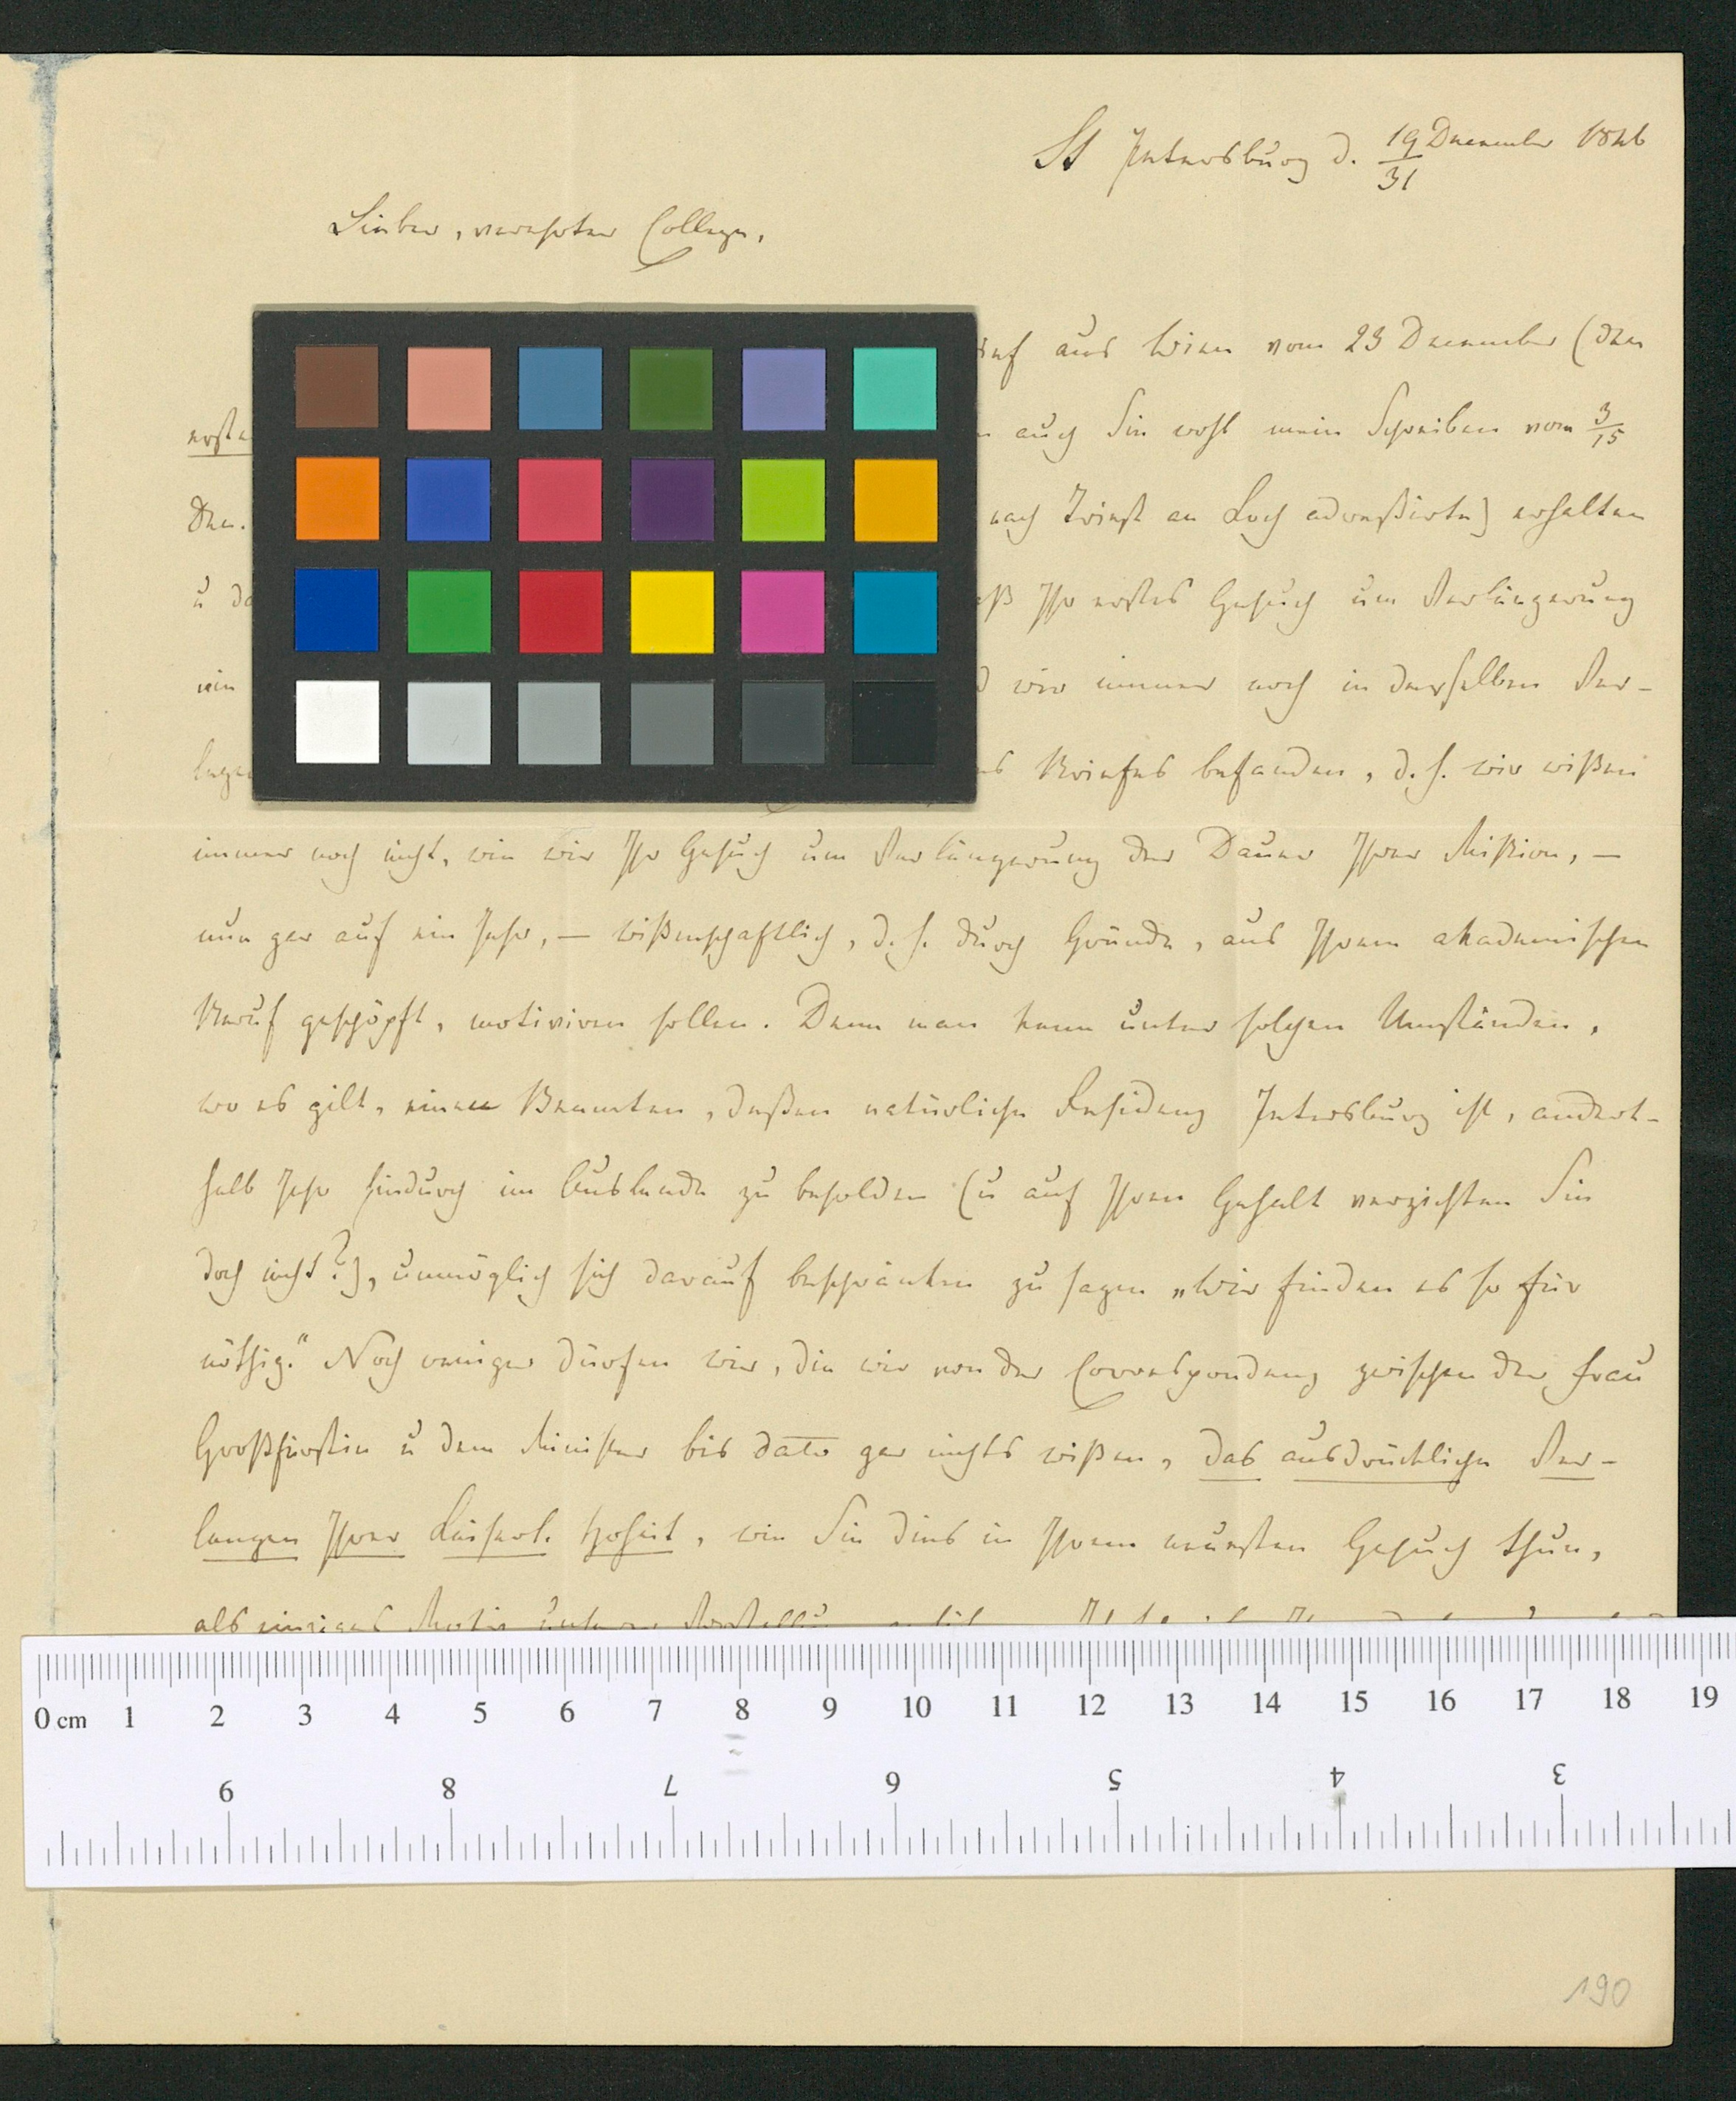 St Petersburg d. 19/31 December 1846
Lieber, verehrter College,
aus Wien vom 23 December (den
erste
auch Sie wohl mein Schreiben vom 3/15
Dec. nach Triest an Loch adreßirte) erhalten
u da Ihr erstes Gesuch um Verlängerung
ein wir immer noch in derselben Ver-
lege Briefes befanden, d. h. wir wißen
immer noch nicht, wie wir Ihr Gesuch um Verlängerung der Dauer Ihrer Mißion, —
nun gar auf ein Jahr, — wißenschaftlich, d. h. durch Gründe, aus Ihrem akademischen
Beruf geschöpft, motiviren sollen. Denn man kann unter solchen Umständen,
wo es gilt, einen Beamten, deßen natürliche Residenz Petersburg ist, andert-
halb Jahr hindurch im Auslande zu besolden (u auf Ihren Gehalt verzichten Sie
doch nicht?), unmöglich sich darauf beschränken zu sagen „Wir finden es so für
nöthig.“ Noch weniger dürfen wir, die wir von der Correspondenz zwischen der Frau
Großfürstin u dem Minister bis dato gar nichts wißen, das ausdrückliche Ver-
langen Ihrer Kaiserl. Hoheit, wie Sie dies in Ihrem neuesten Gesuch thun,
als einziges Motiv unserer Vorstellung
0 cm 1 2 3 4 5 6 7 8 9 10 11 12 13 14 15 16 17 18 19
9 8 7 6 5 4 3
190